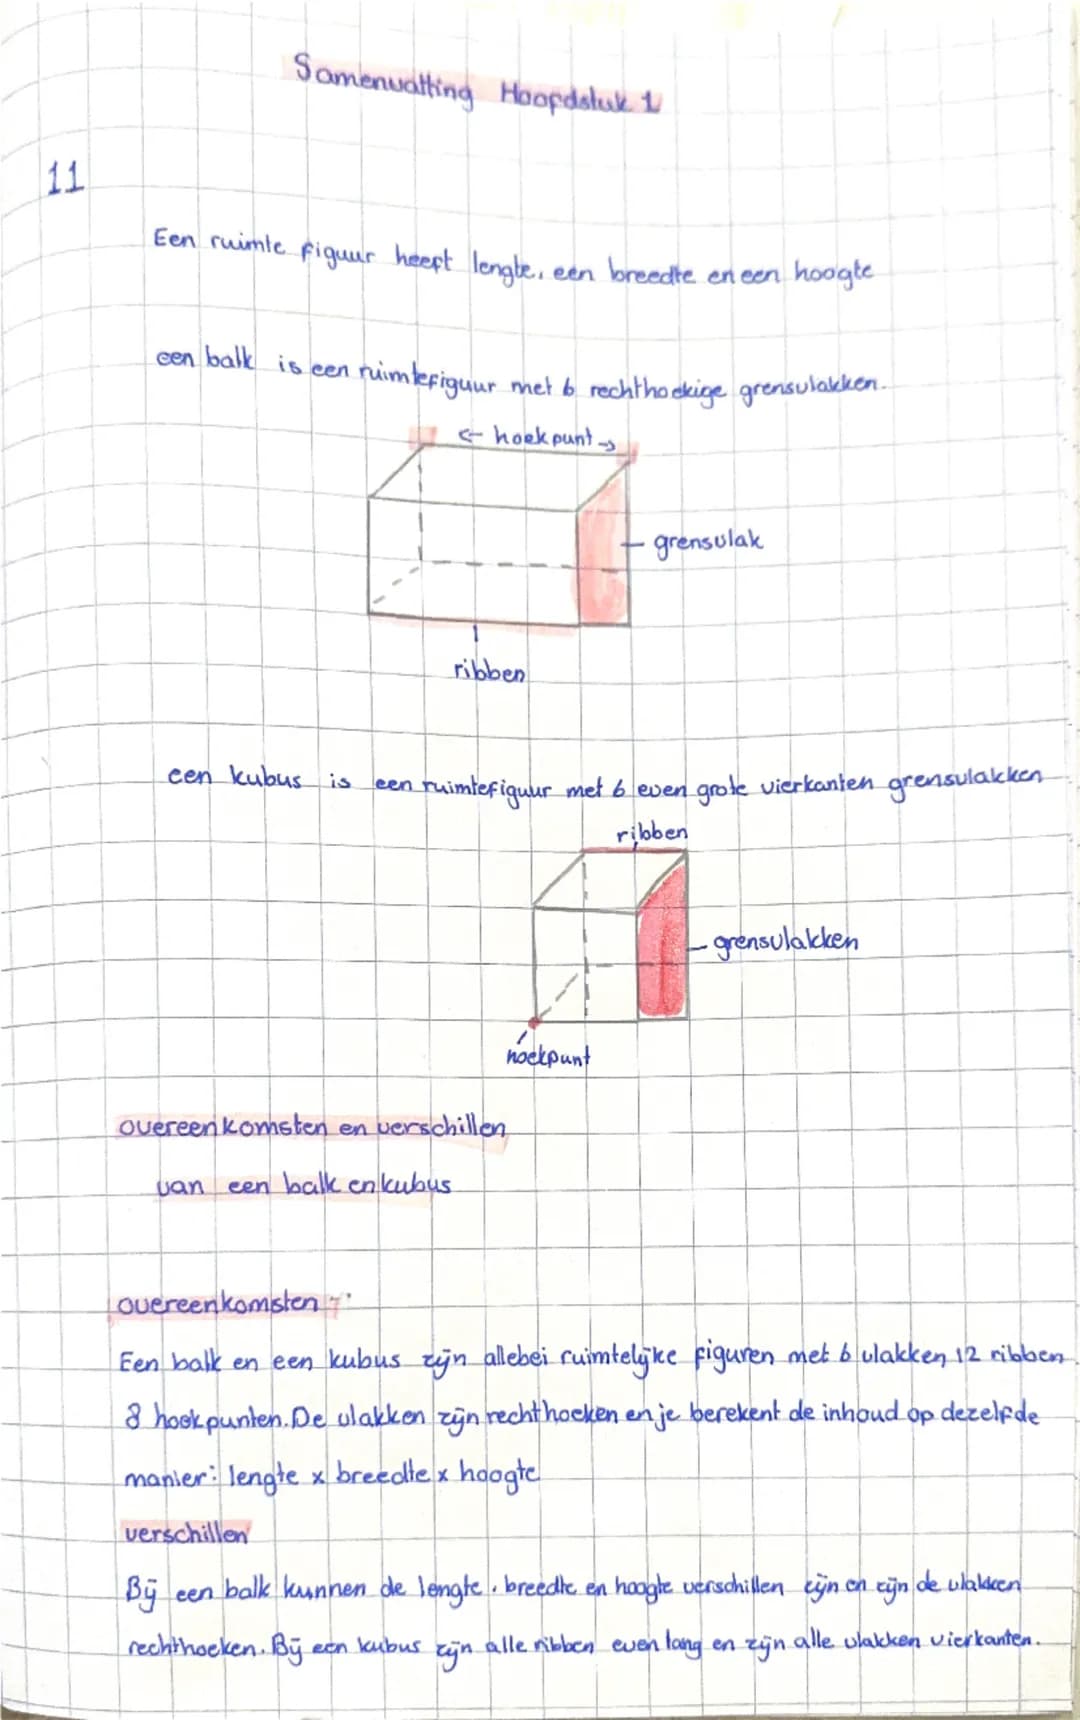 Samenvatting Hoofdstuk 1
11
Een ruimte figuur heeft lengte, een breedte en een hoogte
een balk is een ruimtefiguur met 6 rechthoekige grensvlakken.
← hoekpunt →
grensvlak
ribben
een kubus is een ruimtefiguur met 6 even grote vierkanten grensvlakken
ribben
grensvlakken
hoekpunt
overeenkomsten en verschillen
van een balk en kubus
overeenkomsten :
Een balk en een kubus zijn allebei ruimtelijke figuren met 6 vlakken, 12 ribben
8 hoekpunten. De vlakken zijn rechthoeken en je berekent de inhoud op dezelfde
manier: lengte x breedte x hoogte
verschillen
Bij een balk kunnen de lengte, breedte en hoogte verschillen zijn en zijn de vlakken
rechthoeken. Bij een kubus zijn alle ribben even lang en zijn alle vlakken vierkanten.